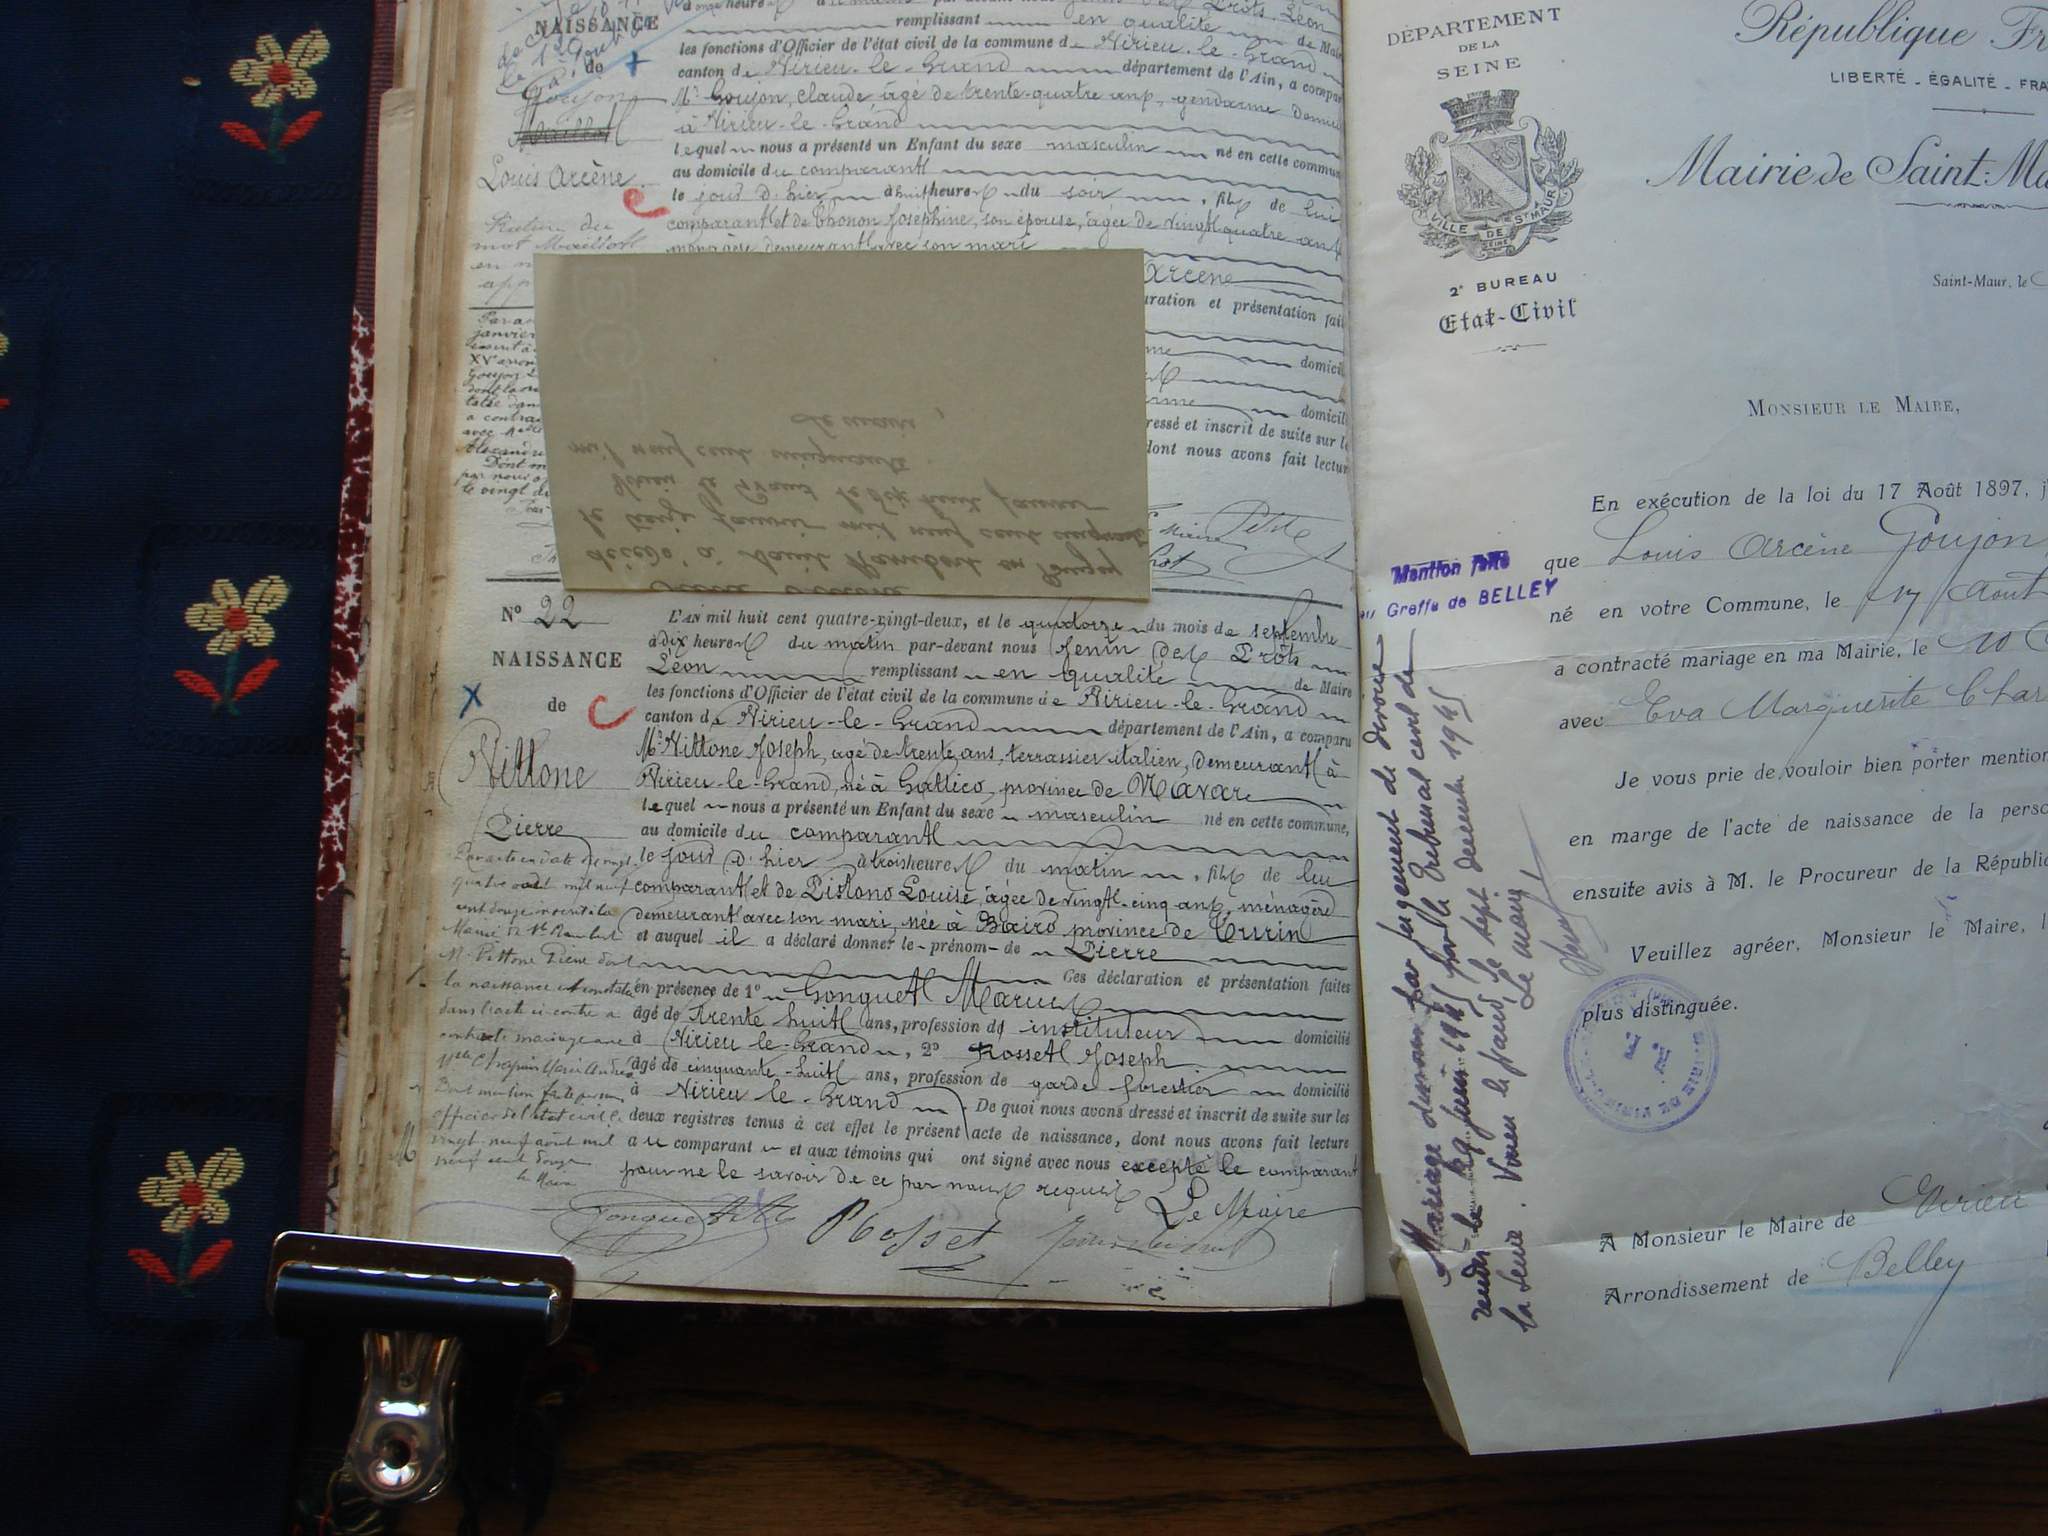 NAISSANCE
de
Goujon
Louis Arcène
remplissant en qualité de Maire
les fonctions d'Officier de l'état civil de la commune de Virieu-le-Grand
canton de Virieu-le-Grand département de l'Ain, a compar
Mr Goujon, Claude, âgé de trente-quatre ans, gendarme
à Virieu-le-Grand
lequel nous a présenté un Enfant du sexe masculin né en cette commun
au domicile du comparant
le jour d'hier à huit heures du soir, fils de lui
comparant et de Thonon Joséphine, son épouse, âgée de vingt quatre ans
ménagère demeurant avec son mari
Arcène
aration et présentation fait
domicil
domicil
ressé et inscrit de suite sur l
dont nous avons fait lectur
décédé à Saint Rambert en Bugey
le treize janvier mil neuf cent cinquante
Virieu le Grand le dix huit janvier
mil neuf cent cinquante.
Le maire,
No 22
NAISSANCE
de
Vittone
Pierre
L'AN mil huit cent quatre-vingt-deux, et le quatorze du mois de septembre
à dix heures du matin par-devant nous Jenin des Prôts
Léon remplissant en qualité de Maire
les fonctions d'Officier de l'état civil de la commune de Virieu-le-Grand
canton de Virieu-le-Grand département de l'Ain, a comparu
Mr Vittone Joseph, âgé de trente ans, terrassier italien, demeurant à
Virieu-le-Grand, né à Gattico, province de Navare
lequel nous a présenté un Enfant du sexe masculin né en cette commune,
au domicile du comparant
le jour d'hier à trois heures du matin, fils de lui
comparant et de Pistono Louise, âgée de vingt-cinq ans, ménagère
demeurant avec son mari, née à Bairo province de Turin
et auquel il a déclaré donner le prénom de Pierre
Ces déclaration et présentation faites
en présence de 1o Gonguet Marius
âgé de trente huit ans, profession d' instituteur domicilié
à Virieu-le-Grand, 2o Rosset Joseph
âgé de cinquante-huit ans, profession de garde forestier domicilié
à Virieu le-Grand. De quoi nous avons dressé et inscrit de suite sur les
deux registres tenus à cet effet le présent acte de naissance, dont nous avons fait lecture
au comparant et aux témoins qui ont signé avec nous excepté le comparant
pour ne le savoir de ce par nous requis
Le Maire
Rosset
Par acte en date du vingt
quatre août mil neuf
cent douze inscrit à la
Mairie de St Rambert
M. Vittone Pierre dont
la naissance est constatée
dans l'acte ci-contre a
contracté mariage avec
Dont mention faite par nous
officier de l'état civil le
vingt-neuf août mil
neuf cent douze
Le Maire
DÉPARTEMENT
DE LA
SEINE
VILLE DE ST MAUR
SEINE
2e BUREAU
Etat-Civil
République Fr
LIBERTÉ - ÉGALITÉ - FRA
Mairie de Saint-Ma
Saint-Maur, le
MONSIEUR LE MAIRE,
En exécution de la loi du 17 Août 1897, j
que Louis Arcène Goujon
né en votre Commune, le 17 Août
a contracté mariage en ma Mairie, le 10
avec Eva Marguerite Char
Je vous prie de vouloir bien porter mention
en marge de l'acte de naissance de la perso
ensuite avis à M. le Procureur de la Républiq
Veuillez agréer, Monsieur le Maire, l
plus distinguée.
A Monsieur le Maire de Virieu
Arrondissement de Belley
Mention faite
au Greffe de BELLEY
Mariage dissous par jugement de divorce
rendu le 29 juin 1945 par le Tribunal civil de
la Seine. Virieu le Grand, le sept décembre 1945
Le maire